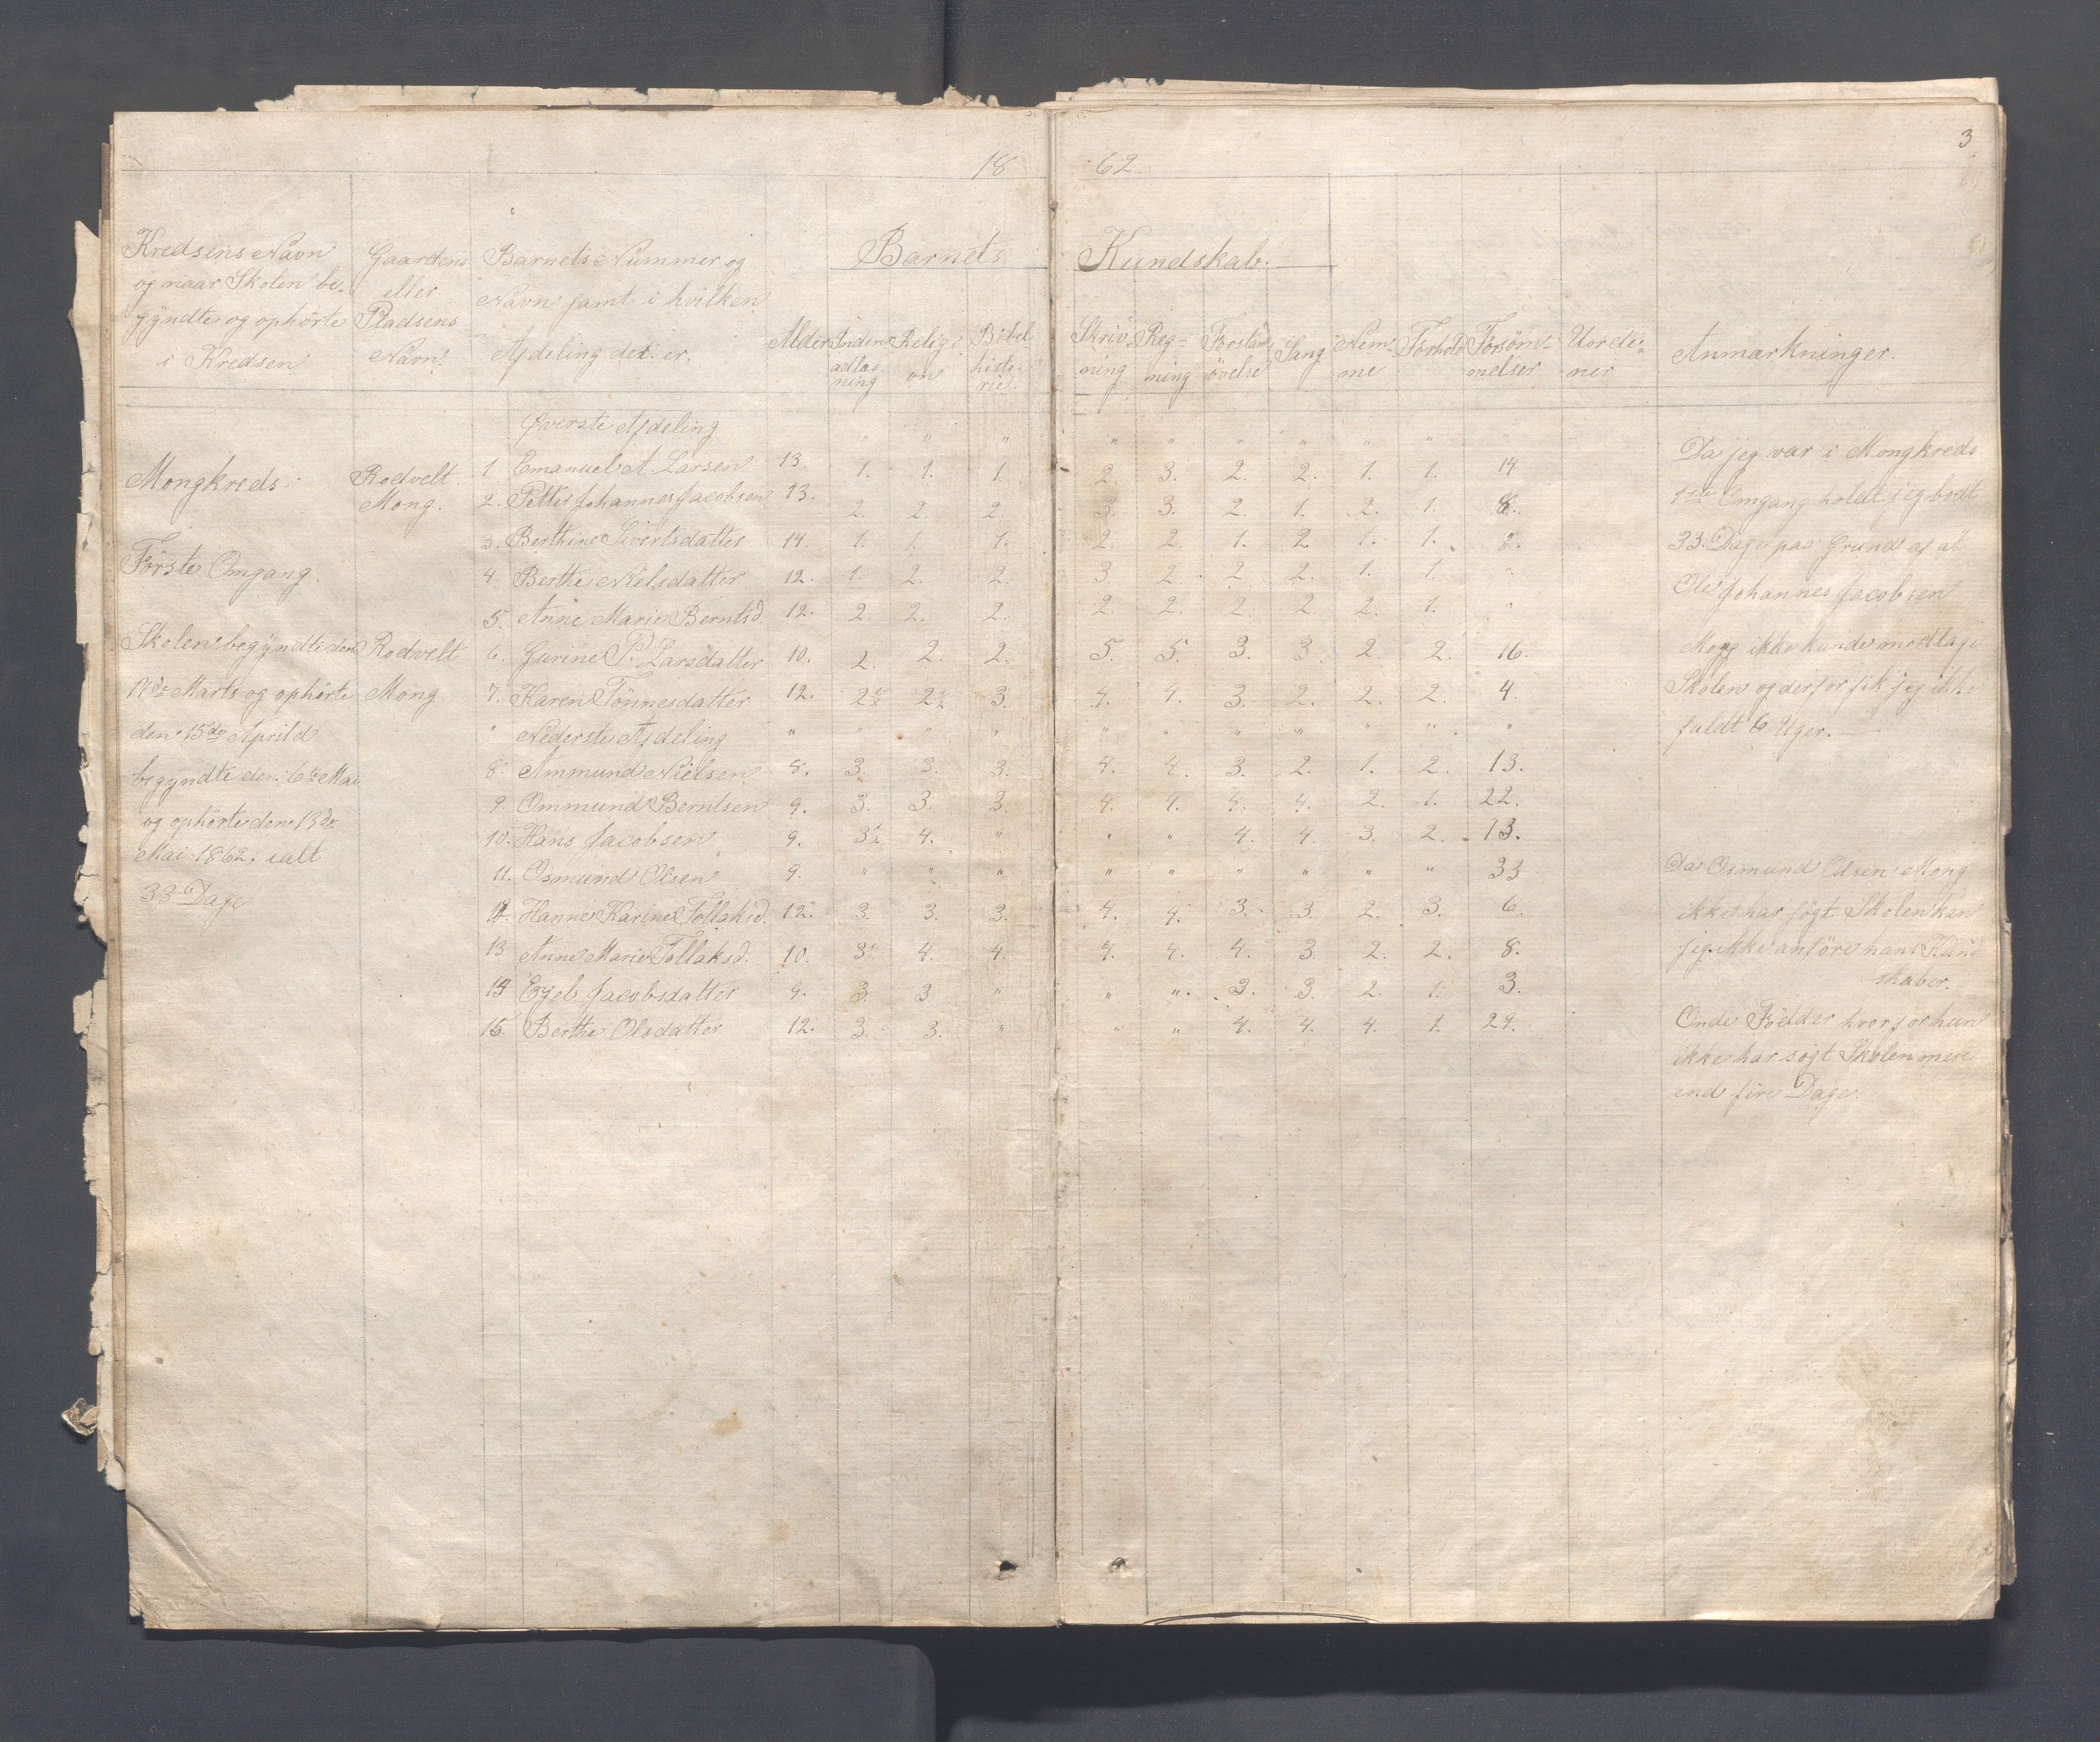 3
18 62.
Kredsens Navn
og naar Skolen be-
gyndte og ophørte
i Kredsen
Gaardens
eller
Pladsens
Navn.
Barnets Nummer og
Navn samt i hvilken
Afdeling det er.
Alder
Barnets Kundskab.
Inden-
adlæs-
ning
Religi-
on
Bibel
histo-
rie.
Skriv-
ning
Reg-
ning
Forstands
övelse
Sang
Nem-
me
Forhold
Forsøm-
melser
Uorde-
ner
Anmærkninger.
Øverste Afdeling " " " " " " " " "
Mongkreds. Rodvelt. 1 Emanuel A. Larsen 13. 1. 1. 1. 2. 3. 2. 2. 1. 1. 14
Mong. 2. Petter Johannes Jacobsen 13. 2. 2. 2. 3. 3. 2. 1. 2. 1. 8.
3. Berthine Sivertsdatter 14. 1. 1. 1. 2. 2. 1. 2 1. 1.
Første Omgang. 4. Berthe Nielsdatter 12. 1. 2. 2. 3. 2. 2 2. 1. 1. "
5. Anne Marie Berntsd. 12. 2. 2. 2. 2. 2. 2. 2. 2. 1. "
Skolen begyndte den Rodvelt 6. Gurine P. Larsdatter 10. 2. 2. 2. 5. 5. 3. 3. 2. 2. 16.
17de Marts og ophørte Mong 7. Karen Tönnesdatter 12. 2½ 2½ 3. 4. 4. 3. 2. 2. 2. 4.
den 15de April d " Nederste Afdeling " " " " " " " " " " "
begyndte den 6te Mai 8. Ammund Nielsen 8. 3. 3. 3. 4. 4. 3. 2. 1. 2. 13.
9. Ommund Berntsen 9. 3. 3. 3. 4. 4. 4. 4. 2. 1. 22.
og ophørte den 13de 10. Hans Jacobsen 9. 3½ 4. " " " 4. 4. 3. 2. 13.
Mai 1862, ialt 11. Osmund Olsen 9. " " " " " " " " " 33
33 Dage 12. Hanne Karine Tollaksd. 12. 3. 3. 3. 4. 4. 3. 3. 2. 3. 6.
13 Anne Marie Tollaksd. 10. 3½ 4. 4. 4. 4. 4. 3. 2. 2. 8.
14 Egel Jacobsdatter 9. 3. 3 " " " 3. 3. 2. 1. 3.
15. Berthe Olsdatter 12. 3. 3. " " " 4. 4. 4. 1. 29.
Da jeg var i Mongkreds
1ste Omgang holdt jeg bodt
33 Dage paa Grund af at
Ole Johannes Jacobsen
Mong ikke kunde modtage
Skolen og derfor fik jeg ikke
fuldt 6 Uger.
Da Osmund Olsen Mong
ikke har søgt Skolen kan
jeg ikke anføre hans Kund
skaber.
Onde Födder hvorfor hun
ikke har søgt Skolen mere
end fire Dage.